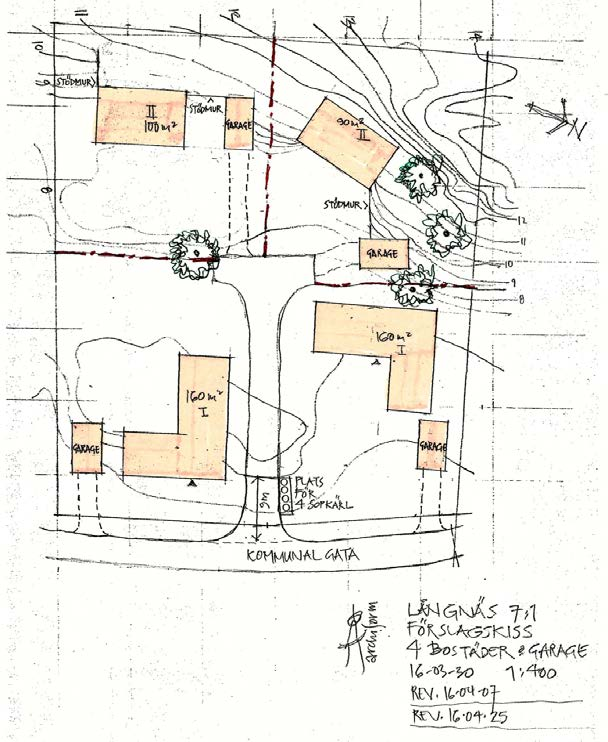 11
12
10
9
8
STÖDMUR
II
100 m²
STÖDMUR
GARAGE
90 m²
II
N
STÖDMUR
GARAGE
12
11
10
9
8
160 m²
I
160 m²
I
GARAGE
GARAGE
9 m
PLATS
FÖR
4 SOPKÄRL
KOMMUNAL GATA
LÅNGNÄS 7:1
FÖRSLAGSKISS
4 BOSTÄDER & GARAGE
16-03-30 1:400
REV. 16.04.07
REV. 16.04.25